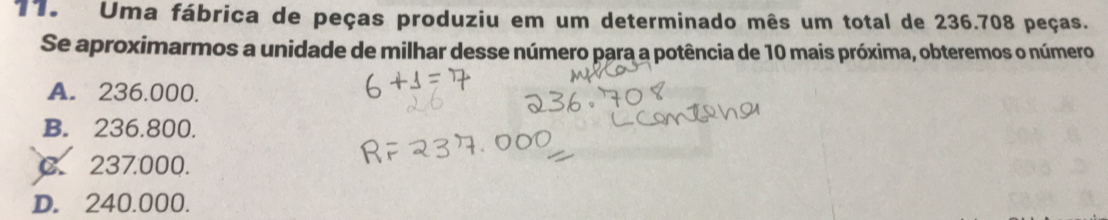 11. Uma fábrica de peças produziu em um determinado mês um total de 236.708 peças.
Se aproximarmos a unidade de milhar desse número para a potência de 10 mais próxima, obteremos o número
A. 236.000.
B. 236.800.
C. 237.000.
D. 240.000.
6+1=7
26
milhar
236.708
centena
R= 237.000